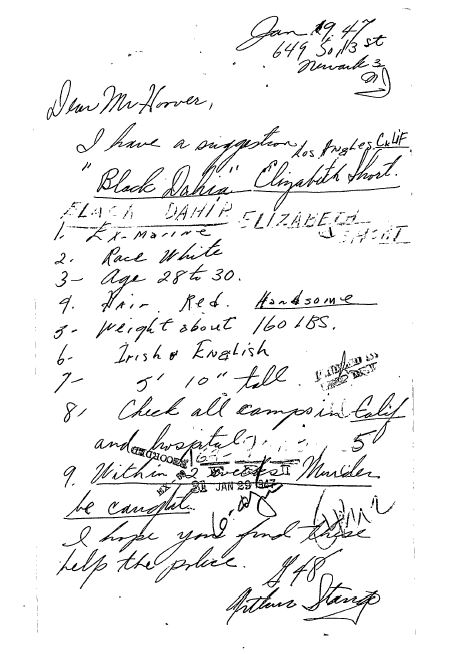 Jan 19, 47
649 So 13 st
Newark 3
NJ
Dear Mr Hoover,
I have a suggestion Los Angles Calif
"Black Dahia" Elizabeth Short.
BLACK DAHIA ELIZABETH
SHORT
1. Ex-Marine
2. Race White
3- Age 28 to 30.
4. Hair Red. Handsome
5- Weight about 160 LBS.
6- Irish & English
7- 5' 10" tall
8, Check all camps in Calif
and hospital,
RECORDED
9. Within 2 weeks Murder
JAN 29 1947
be caught.
I hope you find these
help the police.
Arthur